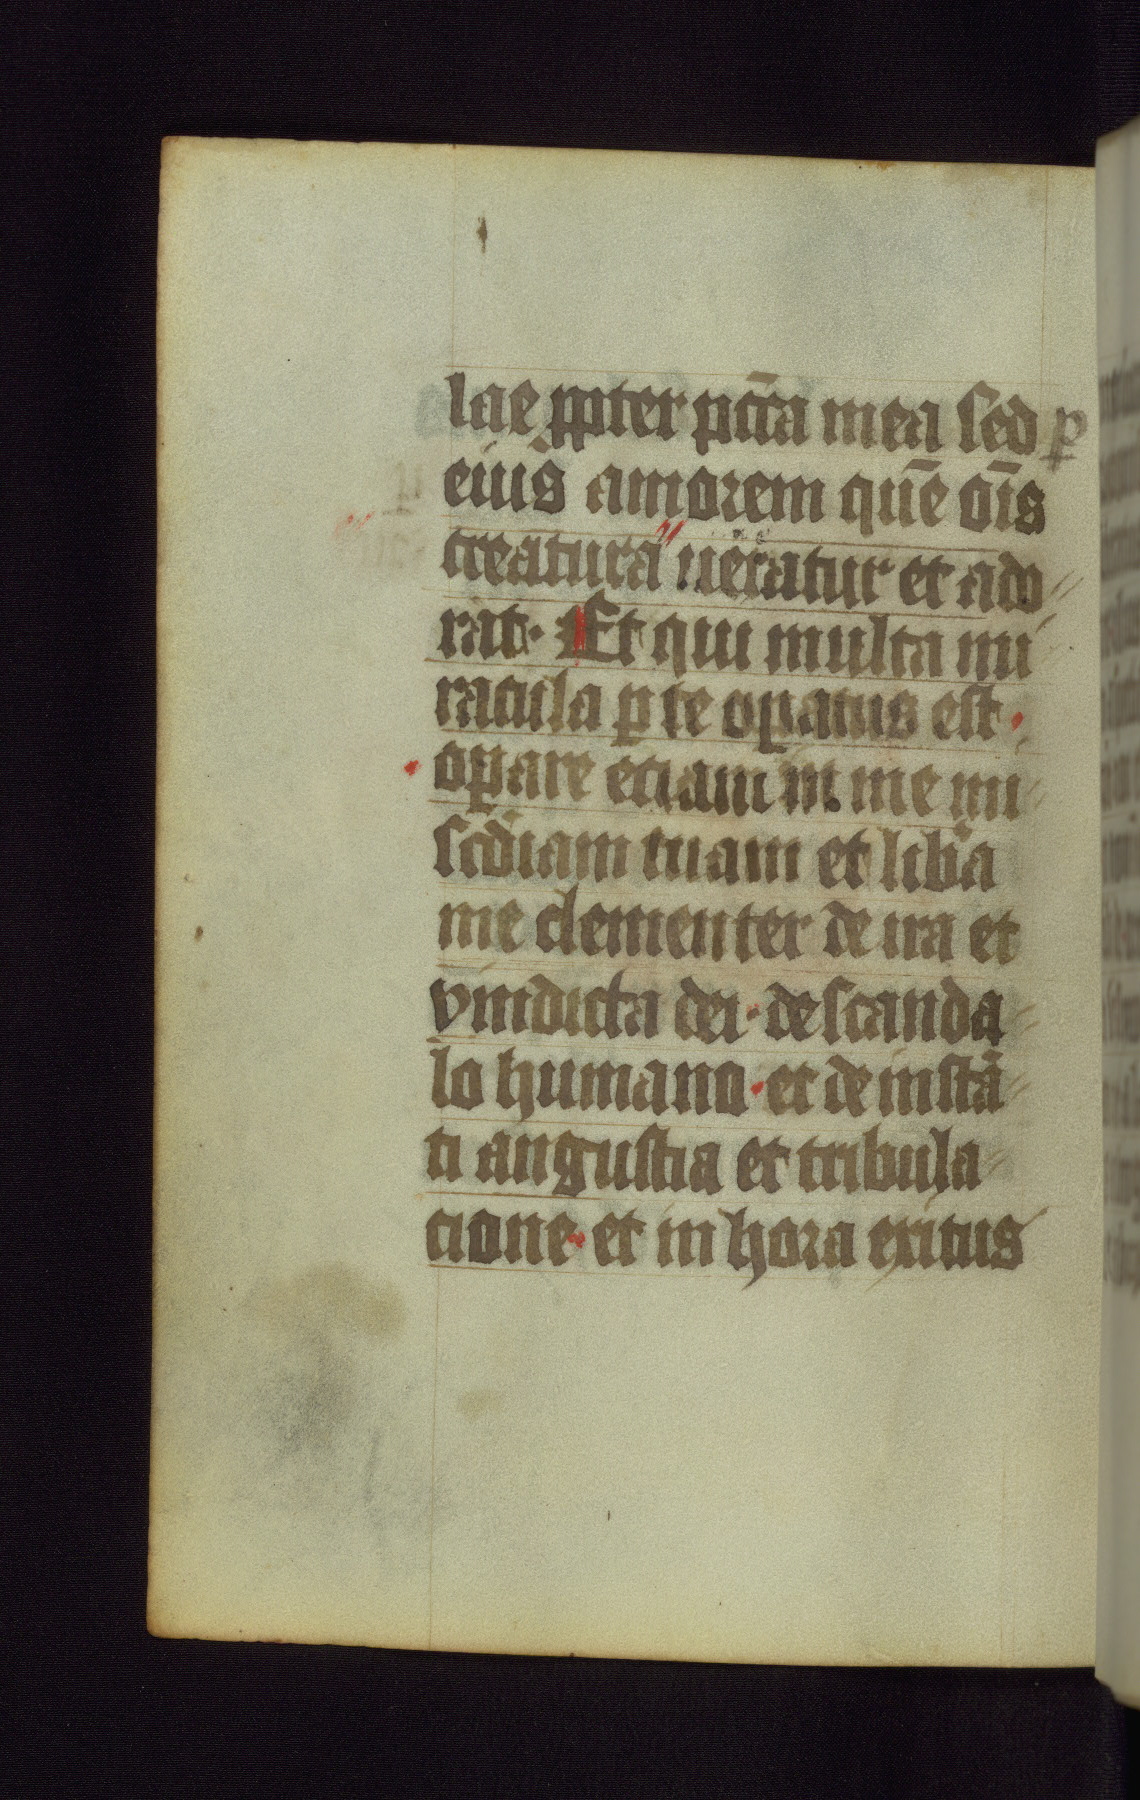 lae ppter pcc̄a mea Sed ꝑ
eius amorem quē oīs
creatura ueratur et ado
rat· Et qui multa mi
racula ꝑ te opatus est ·
oꝑare etiam in me mi
scd̄iam tuam et liba
me clementer de ira et
vindicta dei · de scanda
lo humano · et de instā
ti angustia et tribula
cione · et in hora exitus